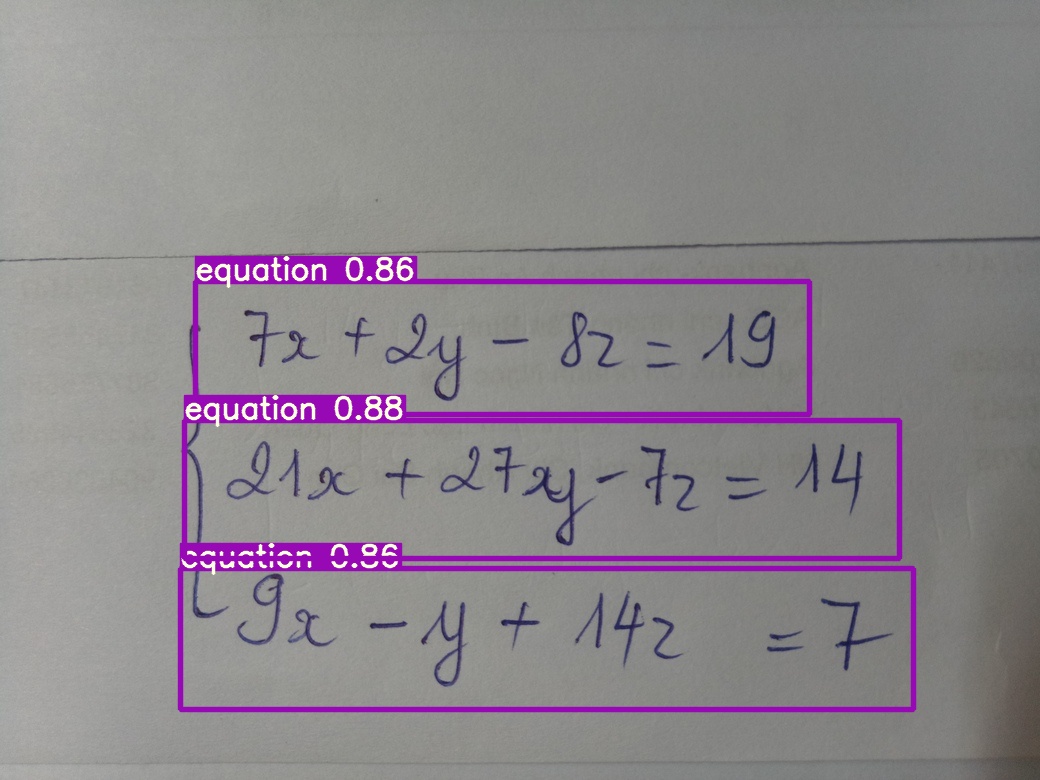 equation 0.86
7x + 2y - 8z = 19
equation 0.88
21x + 27xy - 7z = 14
equation 0.86
9x - y + 14z = 7